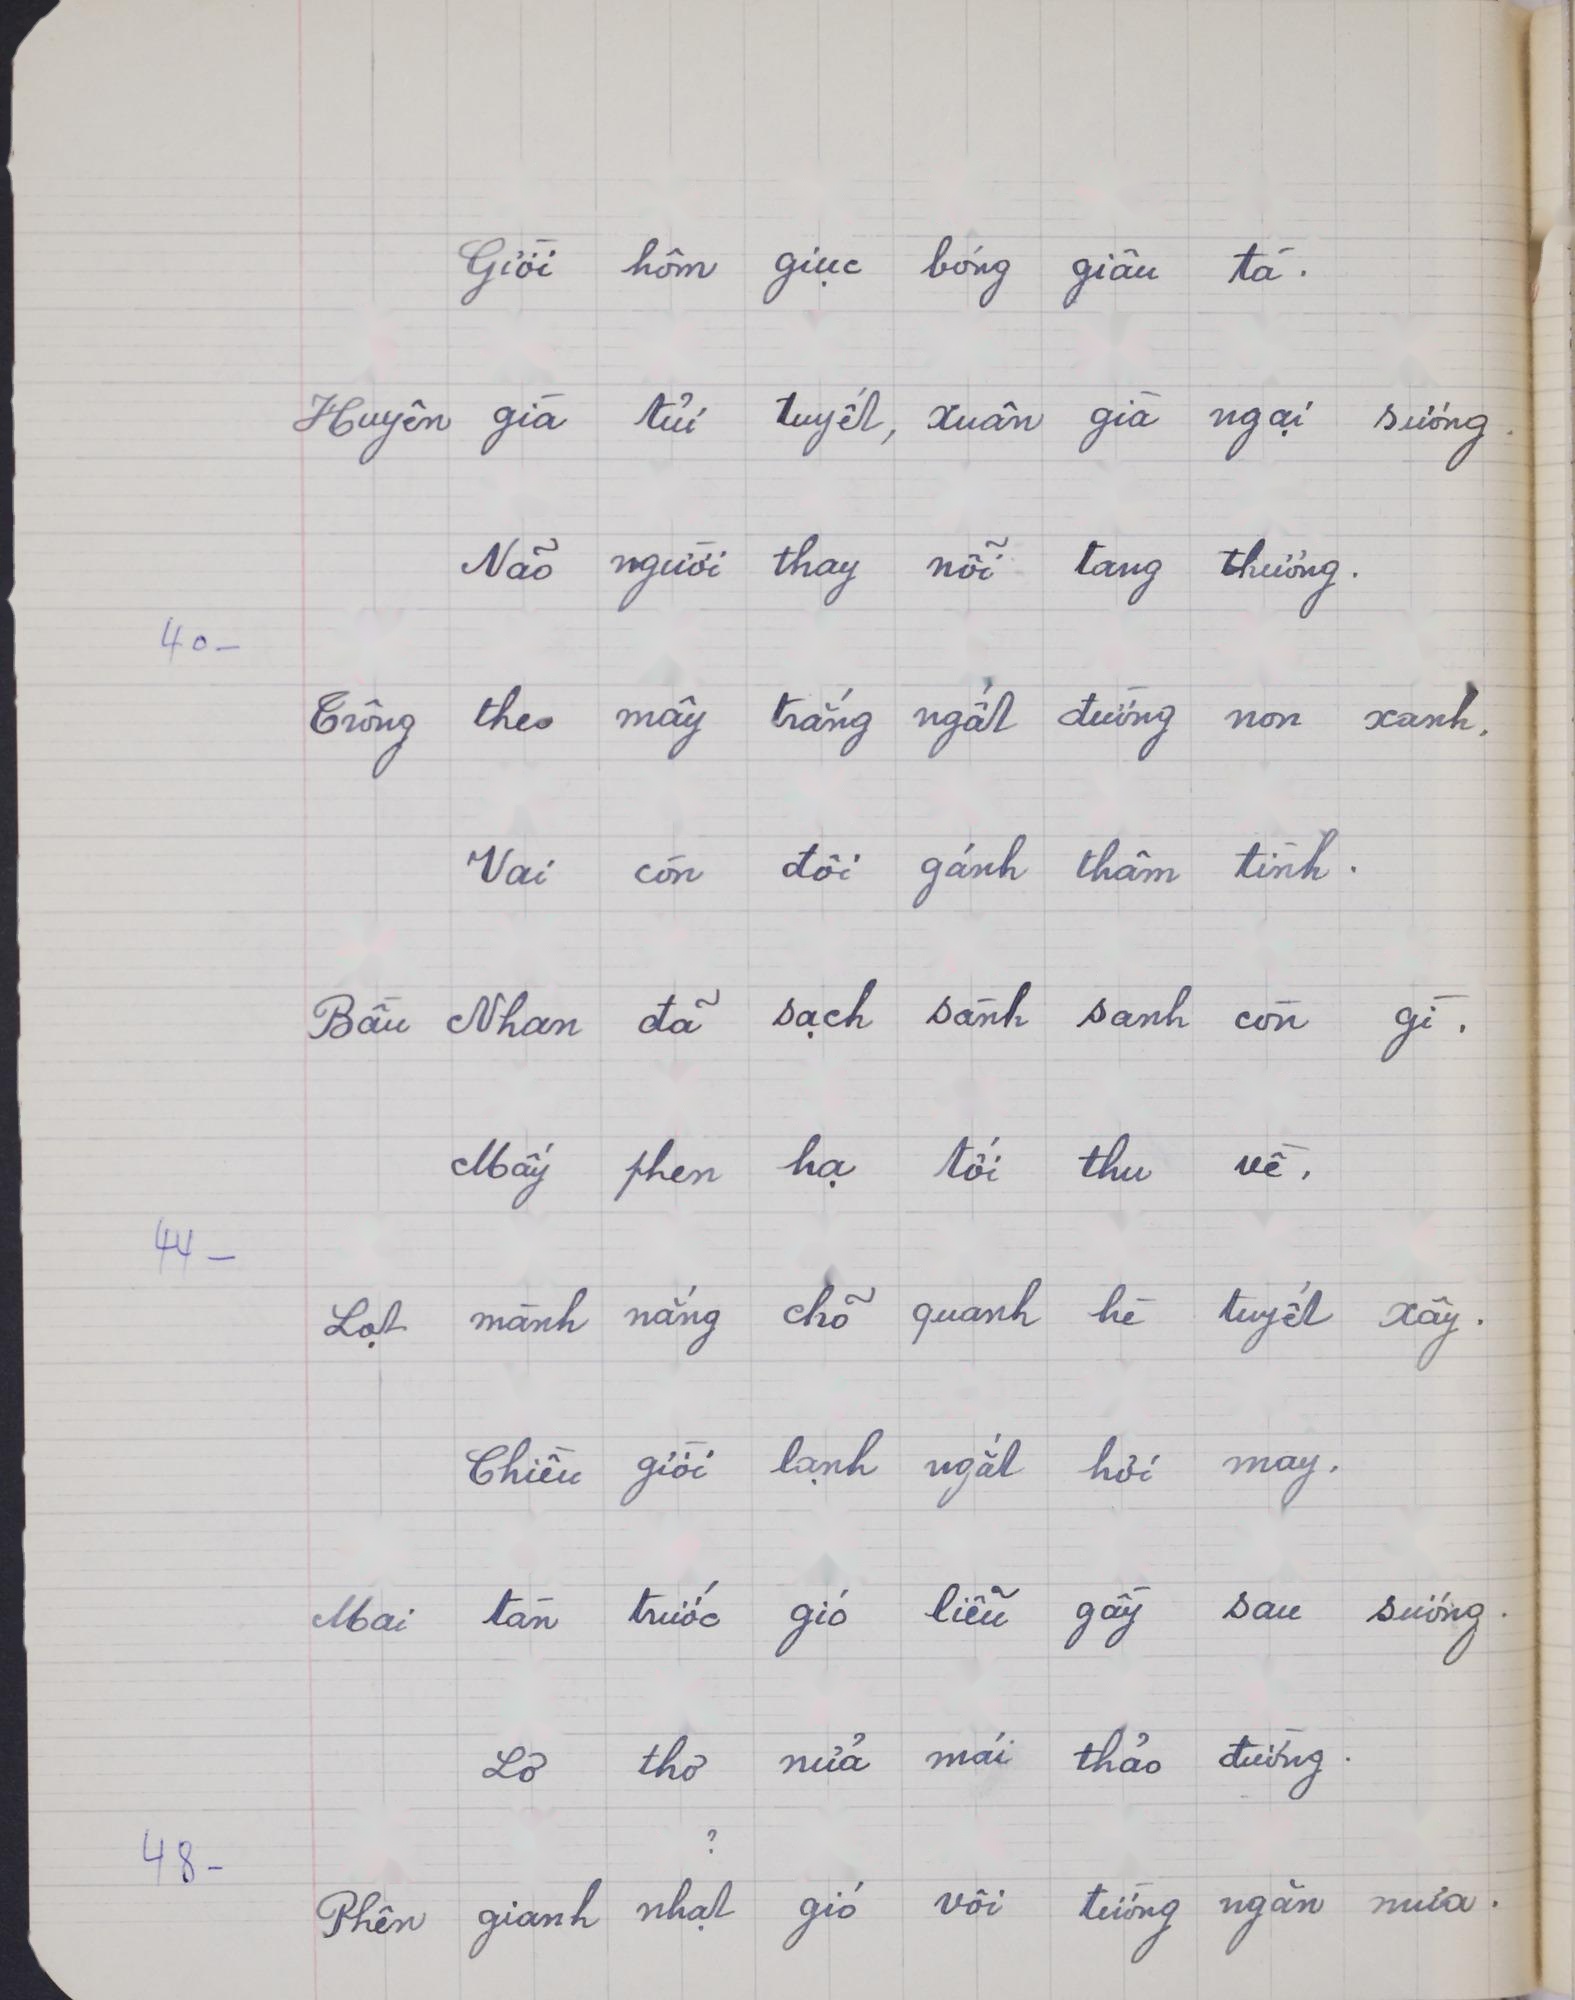 Giời hôm giục bóng giâu tà.
Huyên già tủi tuyết, xuân già ngại sương.
Não người thay nỗi tang thương.
40-
Trông theo mây trắng ngất đường non xanh.
Vai còn đôi gánh thâm tình.
Bầu Nhan đã sạch sành sanh còn gì.
Mấy phen hạ tới thu về.
44-
Lọt mành nắng chõ quanh hè tuyết xây.
Chiều giời lạnh ngắt hơi may.
Mai tàn trước gió liễu gầy sau sương.
Lơ thơ nửa mái thảo đường.
48-
?
Phên gianh nhạt gió vôi tường ngăn mưa.